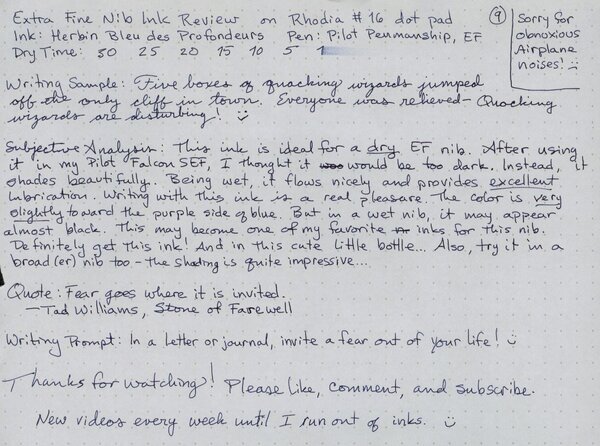 Extra Fine Nib Ink Review on Rhodia #16 dot pad
Ink: Herbin Bleu des Profondeurs Pen: Pilot Penmanship, EF
Dry Time: 30 25 20 15 10 5 1
9
Sorry for
obnoxious
Airplane
noises! :)
Writing Sample: Five boxes of quacking wizards jumped
off the only cliff in town. Everyone was relieved – Quacking
wizards are disturbing! :)
Subjective Analysis: This ink is ideal for a dry EF nib. After using
it in my Pilot Falcon SEF, I thought it was would be too dark. Instead, it
shades beautifully. Being wet, it flows nicely and provides excellent
lubrication. Writing with this ink is a real pleasure. The color is very
slightly toward the purple side of blue. But in a wet nib, it may appear
almost black. This may become one of my favorite inks for this nib.
Definitely get this ink! And in this cute little bottle... Also, try it in a
broad(er) nib too – the shading is quite impressive...
Quote: Fear goes where it is invited.
— Tad Williams, Stone of Farewell
Writing Prompt: In a letter or journal, invite a fear out of your life! :)
Thanks for watching! Please like, comment, and subscribe.
New videos every week until I run out of inks. :)